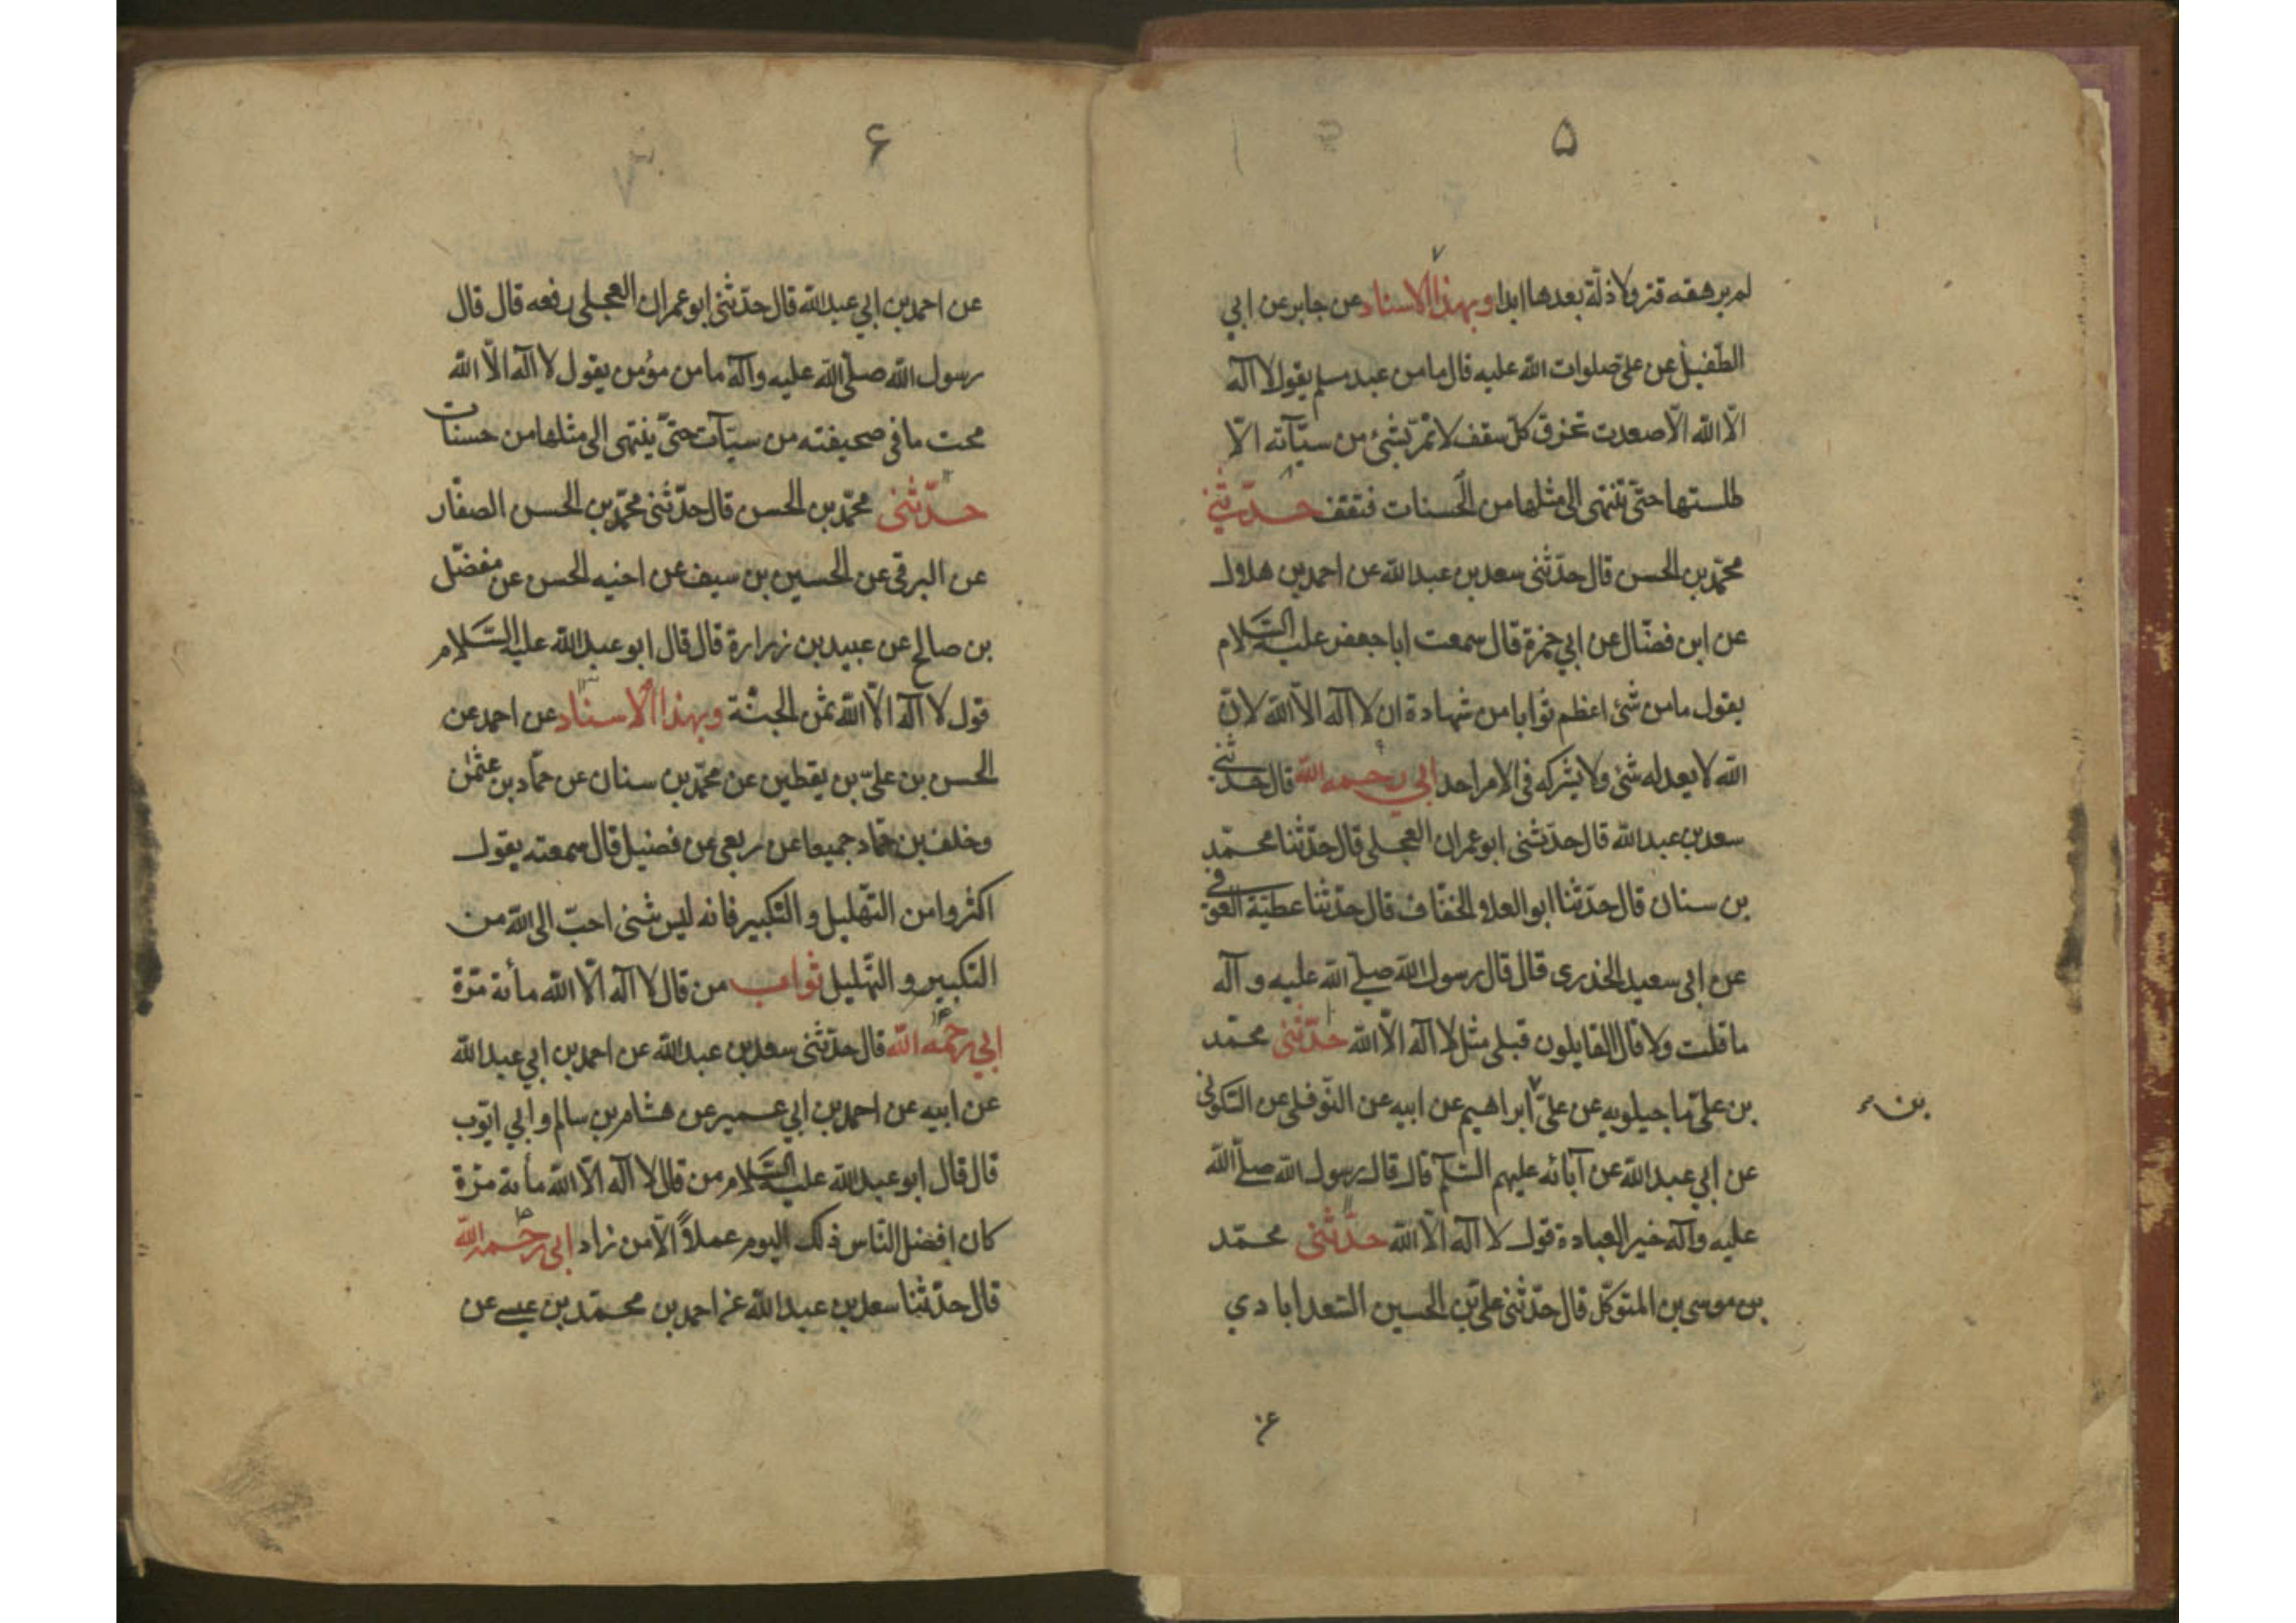 ۵
لم يرهقه قتر ولا ذلّة بعدها ابدا وبهذا الاسناد عن جابر عن ابي
الطّفيل عن علىّ صلوات اللّه عليه قال ما من عبد مسلم يقول لا اله
الّا اللّه الّا صعدت تخرق كلّ سقف لا تمرّ بشئ من سيّآته الّا
طلستها حتّى تنتهى الى مثلها من الحسنات فتقف حدّثني
محمّد بن الحسن قال حدّثنى سعد بن عبد اللّه عن احمد بن هلال
عن ابن فضّال عن ابي حمزة قال سمعت ابا جعفر عليه السّلام
يقول ما من شئ اعظم ثوابا من شهادة ان لا اله الّا اللّه لانّ
اللّه لا يعدله شئ ولا يشركه فى الامر احد ابي رحمه اللّه قال حدّثنى
سعد بن عبد اللّه قال حدّثنى ابو عمران العجلى قال حدّثنا محمّد
بن سنان قال حدّثنا ابو العلاء الخفّاف قال حدّثنا عطيّة العوفى
عن ابى سعيد الخدرى قال قال رسول اللّه صلّى اللّه عليه وآله
ما قلت ولا قال القايلون قبلى مثل لا اله الّا اللّه حدّثنى محمّد
بن علىّ ماجيلويه عن علىّ ابراهيم عن ابيه عن النّوفلى عن السّكونى
بن
عن ابي عبد اللّه عن آبائه عليهم السّلم قال قال رسول اللّه صلّى اللّه
عليه وآله خير العبادة قول لا اله الّا اللّه حدّثنى محمّد
بن موسى بن المتوكّل قال حدّثنى علىّ بن الحسين السّعدابادي
عن
۶
عن احمد بن ابي عبد اللّه قال حدّثنى ابو عمران العجلى رفعه قال قال
رسول اللّه صلّى اللّه عليه وآله ما من مؤمن يقول لا اله الّا اللّه
محت ما فى صحيفته من سيّآت حتّى ينتهى الى مثلها من حسنات
حدّثنى محمّد بن الحسن قال حدّثنى محمّد بن الحسن الصفّار
عن البرقى عن الحسين بن سيف عن اخيه الحسن عن مفضّل
بن صالح عن عبيد بن زرارة قال قال ابو عبد اللّه عليه السّلام
قول لا اله الّا اللّه ثمن الجنّة وبهذا الاسناد عن احمد عن
الحسن بن علىّ بن يقطين عن محمّد بن سنان عن حمّاد بن عثمن
وخلف بن حمّاد جميعا عن ربعى عن فضيل قال سمعته يقول
اكثروا من التّهليل و التكبير فانه ليس شئ احبّ الى اللّه من
التكبير و التّهليل ثواب من قال لا اله الّا اللّه مأئة مرّة
ابي رحمه اللّه قال حدّثنى سعد بن عبد اللّه عن احمد بن ابي عبد اللّه
عن ابيه عن احمد بن ابي عمير عن هشام بن سالم وابي ايّوب
قال قال ابو عبد اللّه عليه السّلام من قال لا اله الّا اللّه مأئة مرّة
كان افضل النّاس ذلك اليوم عملاً الّا من زاد ابي رحمه اللّه
قال حدّثنا سعد بن عبد اللّه عن احمد بن محمّد بن عيسى عن